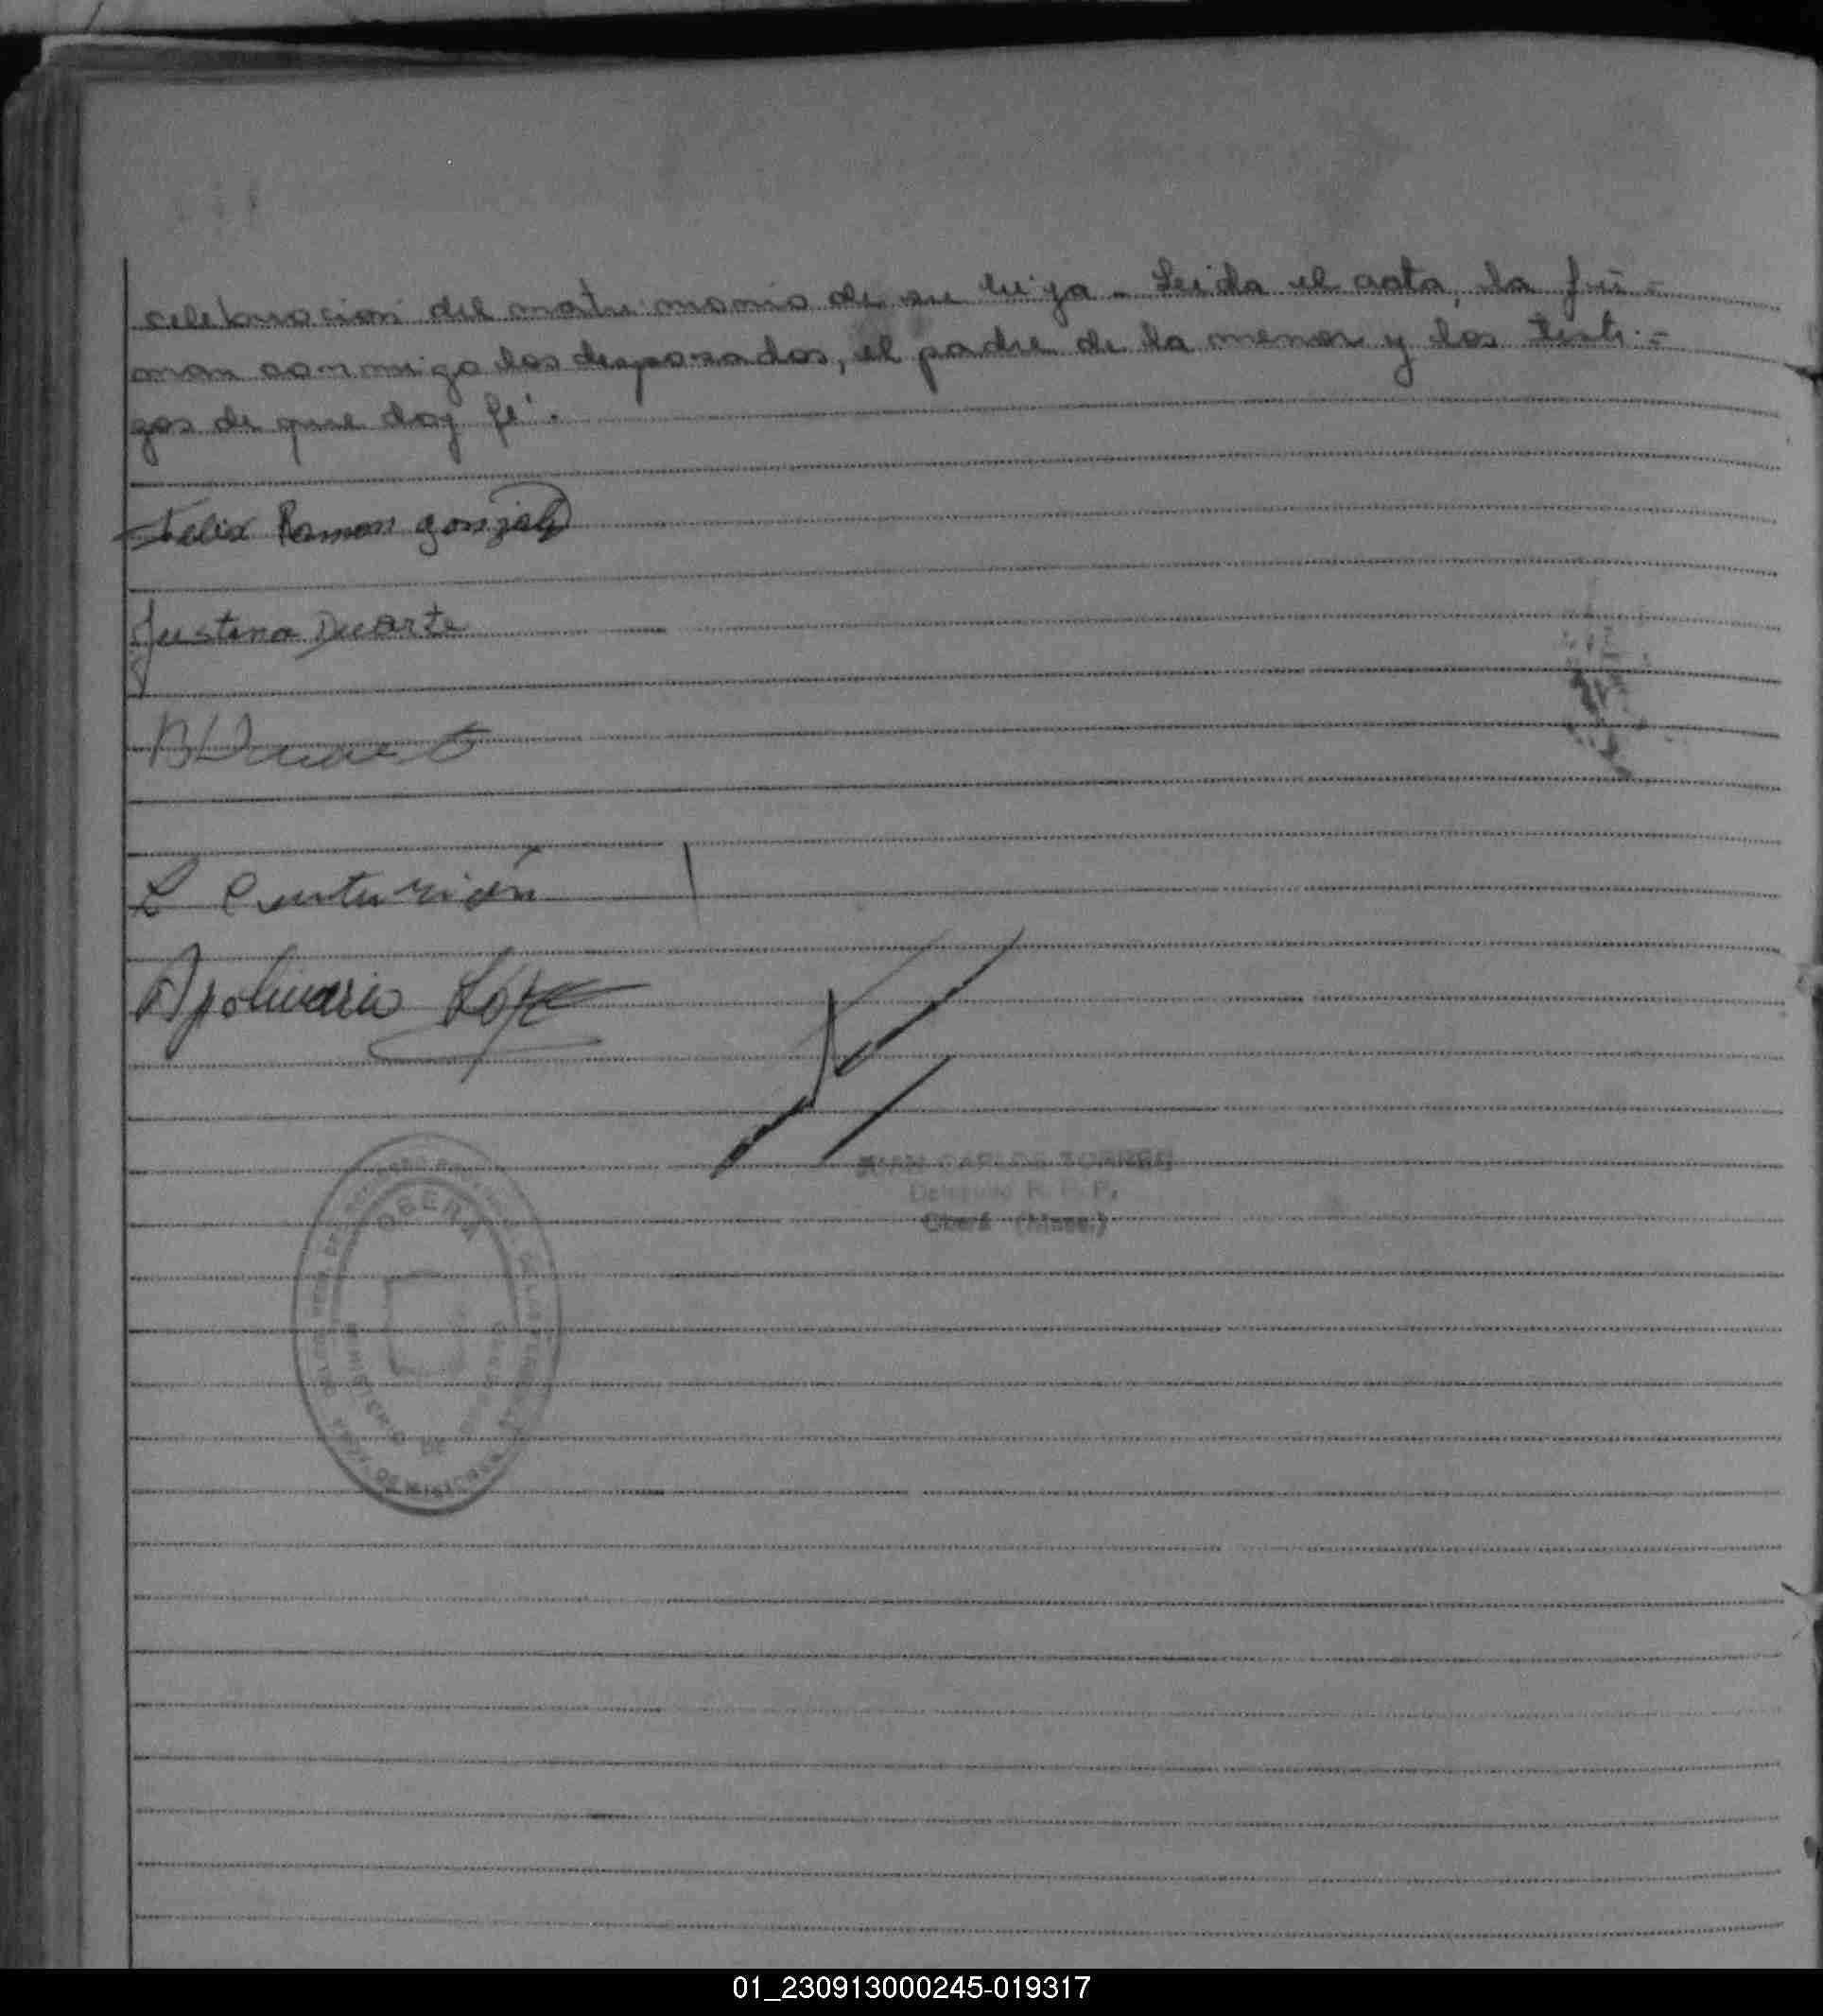 celebracion del matrimonio de su hija - Leida el acta, la fir=
man conmigo los desposados, el padre de la menor y los testi=
gos de que doy fé.
Felix Ramon Gonzalez
Justina Duarte
L Centurión
Apolinario Lopez
JUAN CARLOS TORRES
Delegado R. P. P.
Oberá (Mnes.)
OBERA
MINISTERIO DE
01_230913000245-019317